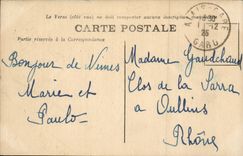 Le Verso (côté vue) ne doit comporter aucune inscription
CARTE POSTALE
Partie réservée à la Correspondance
GARD
Bonjour de Nimes
Marie et
Paulo
Madame Gaudchaud
Clos de la Sarra
à Oullins
Rhône